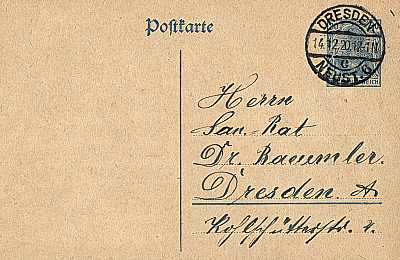 Postkarte
DRESDEN
14.12.20.12-1N
NEUST.6
REICH
Herrn
San. Rat
Dr. Baeumler.
Dresden A
Kohlschütterstr.